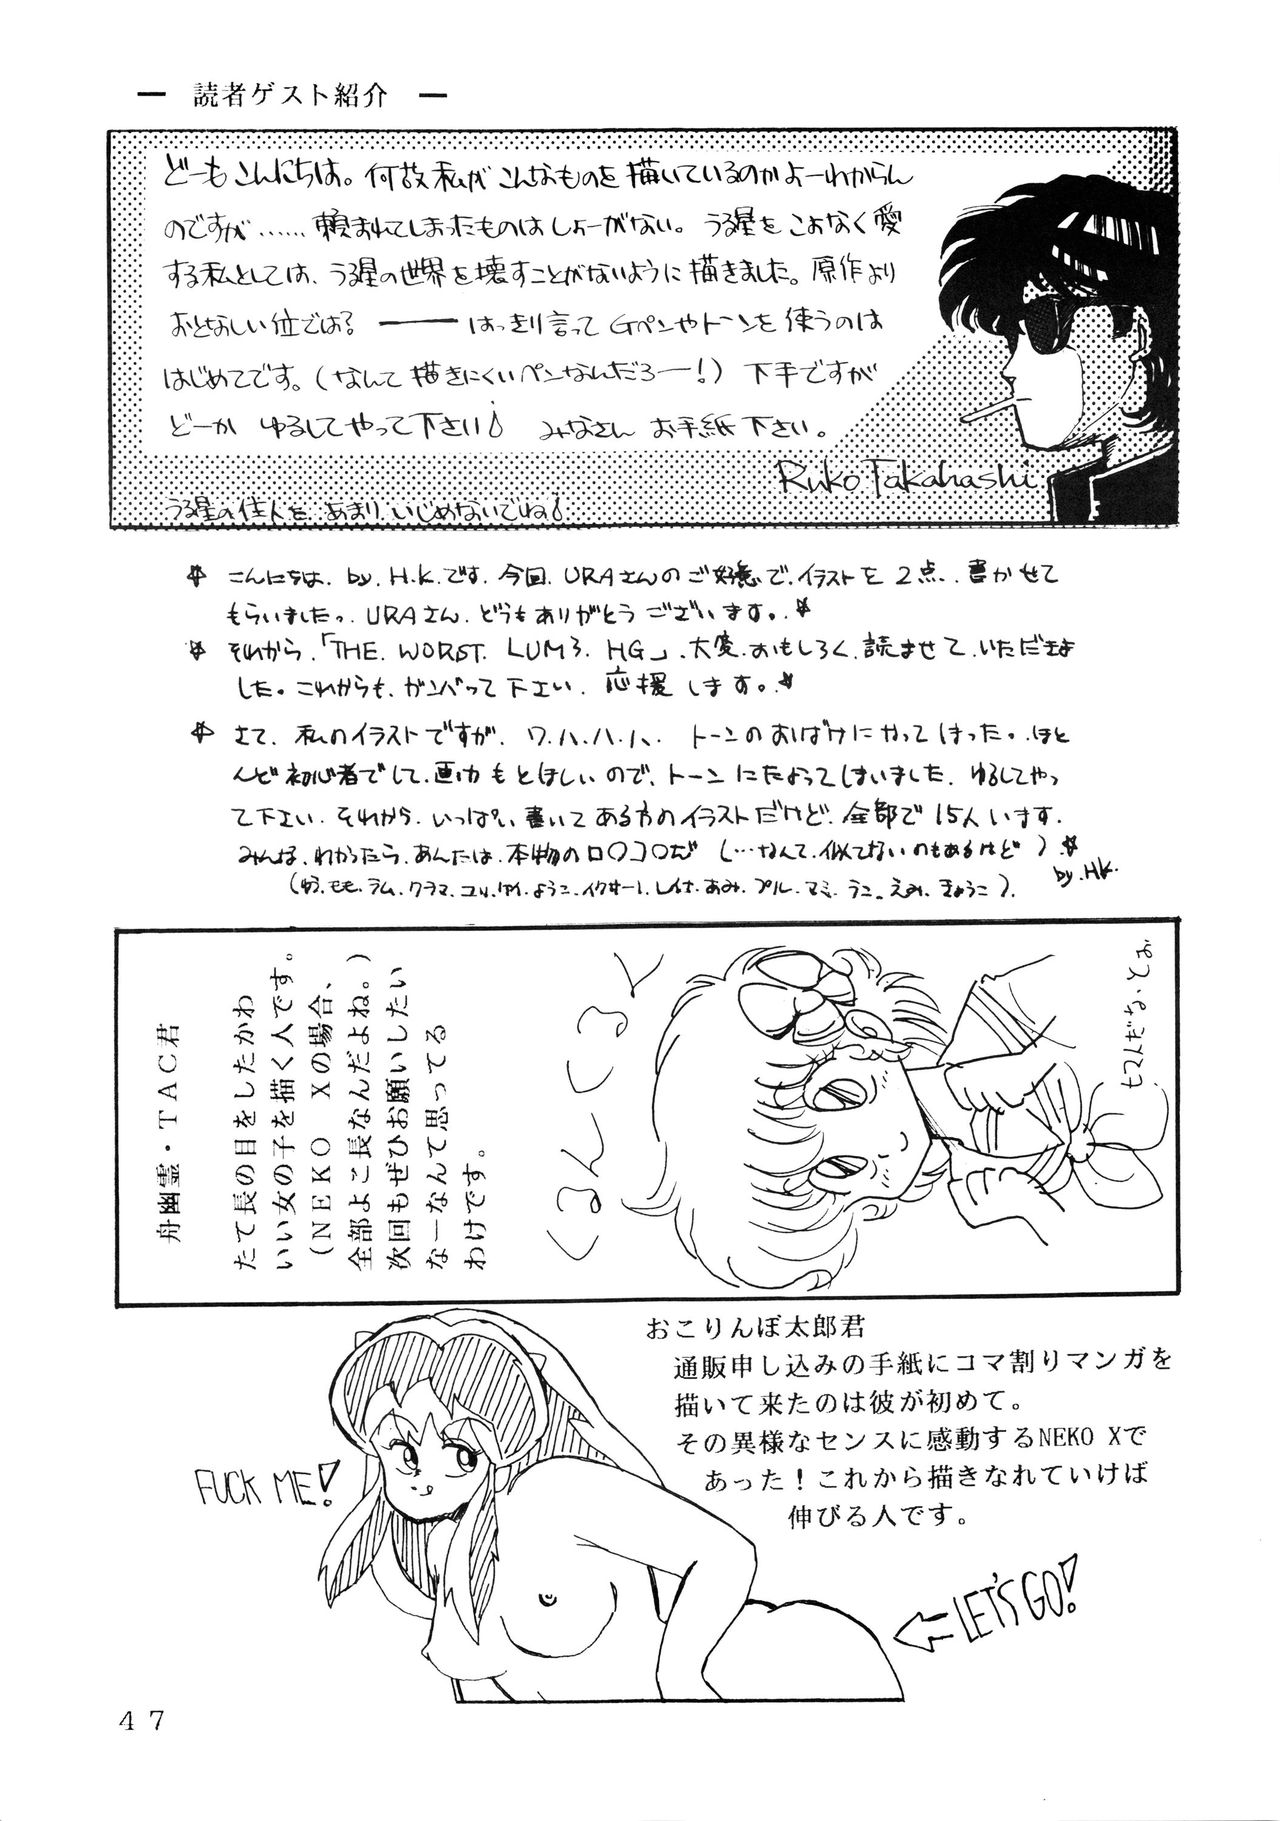 ― 読者ゲスト紹介 ―
どーもこんにちは。何故私がこんなものを描いているのかよーわからん
のですが……頼まれてしまったものはしょーがない。うる星をこよなく愛
する私としては、うる星の世界を壊すことがないように描きました。原作より
おとなしい位では? ――はっきり言ってGペンやトーンを使うのは
はじめてです。(なんて描きにくいペンなんだろー!) 下手ですが
どーか ゆるしてやって下さい! みなさん お手紙下さい。
Ruko Takahashi
うる星の住人を、あまり、いじめないでね!
☆ こんにちは、by. H.K.です。今回、URAさんのご好意で、イラストを2点、書かせて
もらいましたっ、URAさん、どうもありがとうございます。☆
☆ それから、「THE. WORST. LUM3. HG」、大変、おもしろく、読ませて、いただきま
した。これからも、ガンバって下さい、応援します。☆
☆ さて、私のイラストですが、ワ.ハ.ハ.ハ、トーンのおばけにやってはった。ほと
んど初心者でして、画力もとぼしいので、トーンにたよってしまいました、ゆるしてやっ
て下さい、それから、いっぱい書いてある方のイラストだけど、全部で15人います。
みんな、わかったら、あんたは、本物のロ○コ○だ (…なんて、似てないのもあるけど)☆
by. H.K.
(ゆう、モモ、ラム、クラマ、ユリ、けい、ようこ、イクサー1、レイナ、あみ、プル、マミ、ラニ、えみ、きょうこ).
舟幽霊・TAC君
たて長の目をしたかわ
いい女の子を描く人です。
(NEKO Xの場合、
全部よこ長なんだよね。)
次回もぜひお願いしたい
なーなんて思ってる
わけです。
くるんくるん
ヒマんだな・とお
おこりんぼ太郎君
通販申し込みの手紙にコマ割りマンガを
描いて来たのは彼が初めて。
その異様なセンスに感動するNEKO Xで
あった!これから描きなれていけば
伸びる人です。
FUCK ME!
LET'S GO!
47